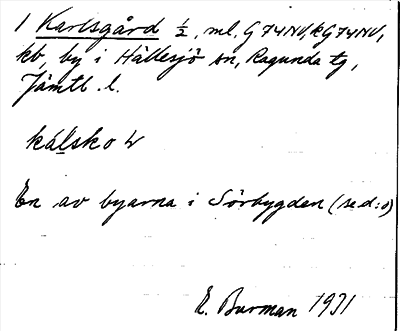 1 Karlsgård ½, ml. G 74 NV, kG 74 NV,
kb, by i Hällesjö sn, Ragunda tg,
Jämtl. l.
kálsko
En av byarna i Sörbygden (se d:o)
E. Burman 1931